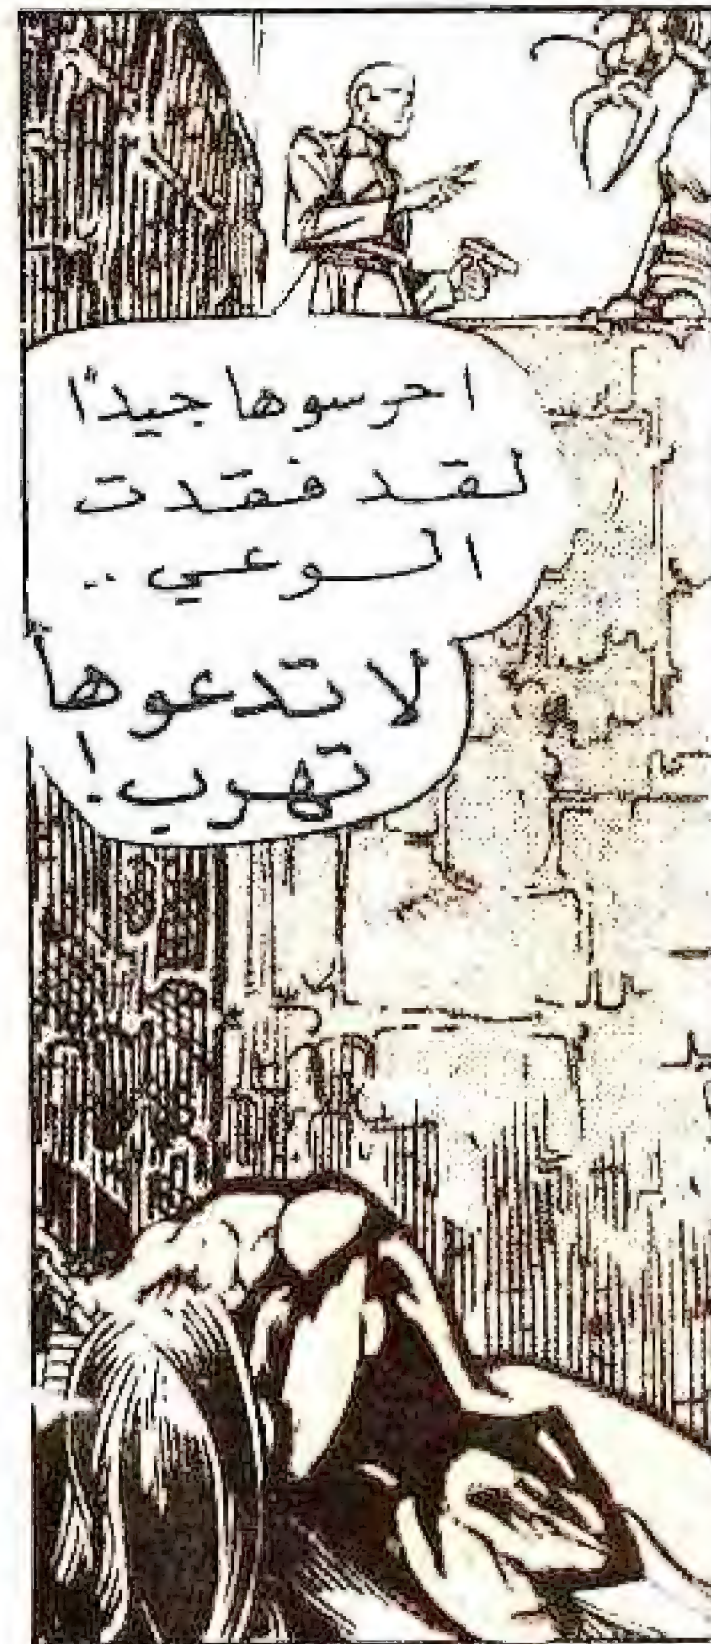 احرسوها جيدًا
لقد فقدت
الوعي ..
لا تدعوها
تهرب!